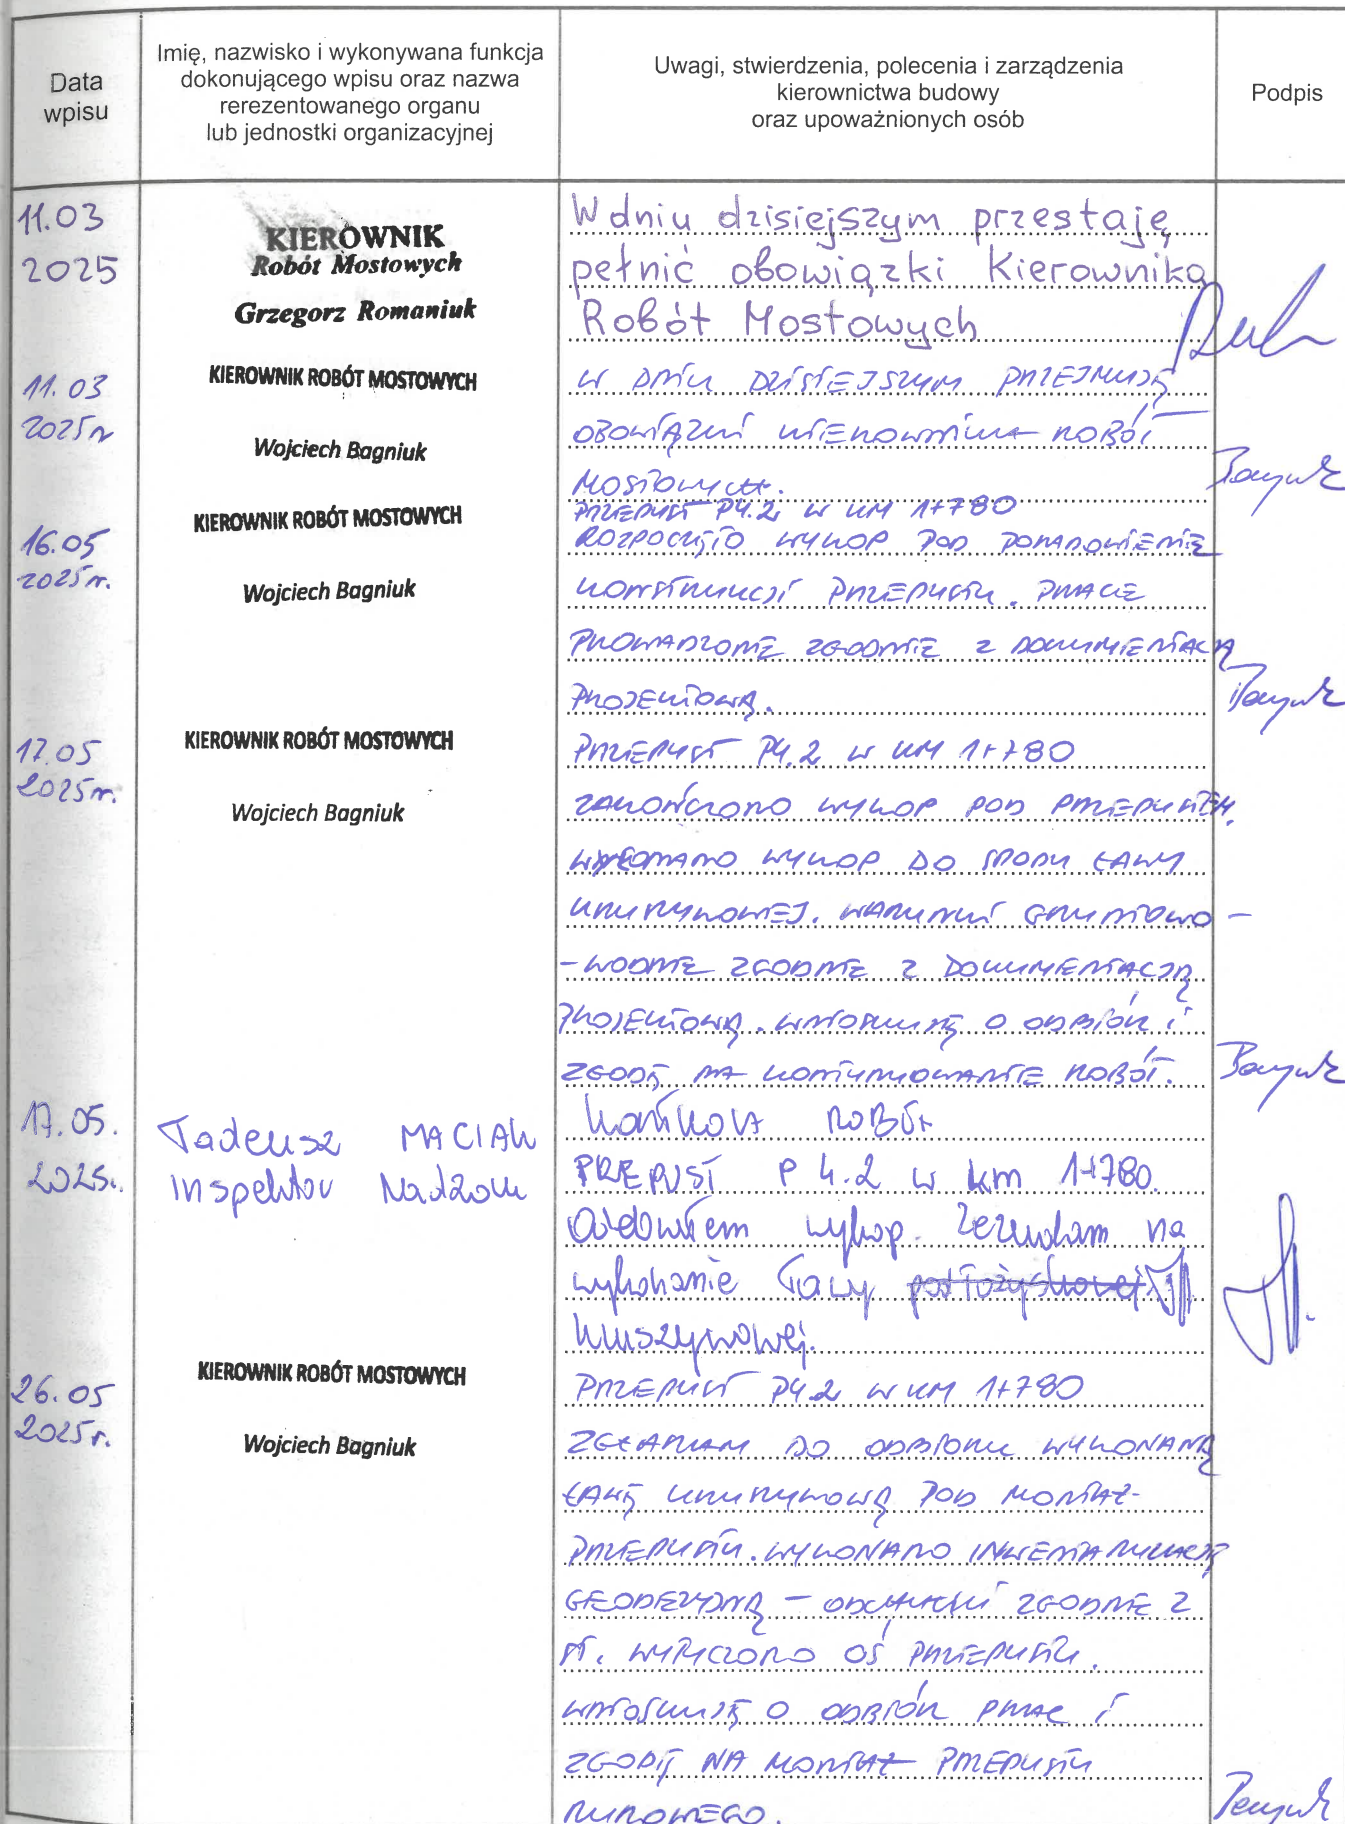 Data
wpisu
Imię, nazwisko i wykonywana funkcja
dokonującego wpisu oraz nazwa
rerezentowanego organu
lub jednostki organizacyjnej
Uwagi, stwierdzenia, polecenia i zarządzenia
kierownictwa budowy
oraz upoważnionych osób
Podpis
11.03
2025
KIEROWNIK
Robót Mostowych
Grzegorz Romaniuk
W dniu dzisiejszym przestaję
pełnić obowiązki Kierownika
Robót Mostowych
11.03
2025r
KIEROWNIK ROBÓT MOSTOWYCH
Wojciech Bagniuk
W DNIU DZISIEJSZYM PRZEJMUJĘ
OBOWIĄZKI KIEROWNIKA ROBÓT
MOSTOWYCH.
16.05
2025r.
KIEROWNIK ROBÓT MOSTOWYCH
Wojciech Bagniuk
PRZEPUST P4.2 W KM 1+780
ROZPOCZĘTO WYKOP POD POSADOWIENIE
KONSTRUKCJI PRZEPUSTU. PRACE
PROWADZONE ZGODNIE Z DOKUMENTACJĄ
PROJEKTOWĄ.
17.05
2025r.
KIEROWNIK ROBÓT MOSTOWYCH
Wojciech Bagniuk
PRZEPUST P4.2 W KM 1+780
ZAKOŃCZONO WYKOP POD PRZEPUSTEM.
WYKONANO WYKOP DO SPODU ŁAWY
KRUSZYWOWEJ. WARUNKI GRUNTOWO -
- WODNE ZGODNE Z DOKUMENTACJĄ
PROJEKTOWĄ. WNIOSKUJĘ O ODBIÓR I
ZGODĘ NA KONTYNUOWANIE ROBÓT.
17.05.
2025r.
Tadeusz MACIAK
Inspektor Nadzoru
Kontrola ROBÓT
PRZEPUST P 4.2 w km 1+780.
Odebrałem wykop. Zezwalam na
wykonanie ławy podłożyskowej
kruszywowej.
26.05
2025r.
KIEROWNIK ROBÓT MOSTOWYCH
Wojciech Bagniuk
PRZEPUST P4.2 W KM 1+780
ZGŁASZAM DO ODBIORU WYKONANĄ
ŁAWĘ KRUSZYWOWĄ POD MONTAŻ
PRZEPUSTU. WYKONANO INWENTARYZACJĘ
GEODEZYJNĄ - ODCHYŁKI ZGODNE Z
ST. WYTYCZONO OŚ PRZEPUSTU.
WNIOSKUJĘ O ODBIÓR PRAC I
ZGODĘ NA MONTAŻ PRZEPUSTU
RUROWEGO.